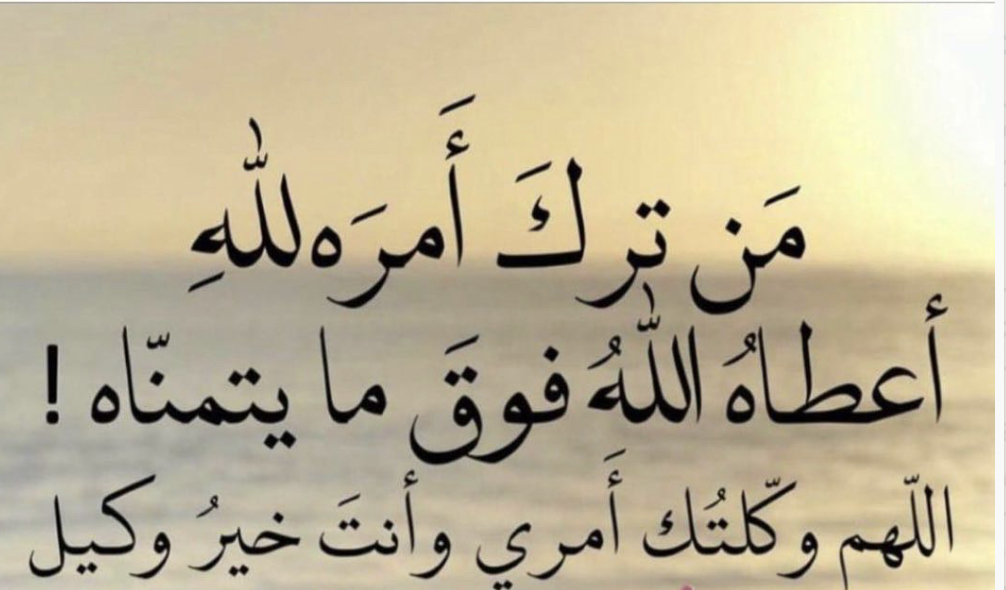 مَن ترك أَمرَه للهِ
أعطاهُ اللهُ فوقَ ما يتمنّاه !
اللّهم وكّلتُك أَمري وأنتَ خيرُ وكيل